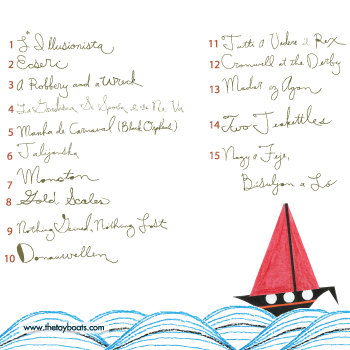 1 L'Illusionista
2 Eoseric
3 A Robbery and a Wreck
4 La Gondola, Si Sposta e se Ne Va
5 Manha de Carnaval (Black Orpheus)
6 Talijanska
7 Moncton
8 Gold Scales
9 Nothing Gained, Nothing Lost
10 Donauwellen
11 Tutti A Vedere il Rex
12 Cromwell at the Derby
13 Madar az Agon
14 Two Teakettles
15 Nagy a Feje,
Busuljon a Lo
www.thetoyboats.com